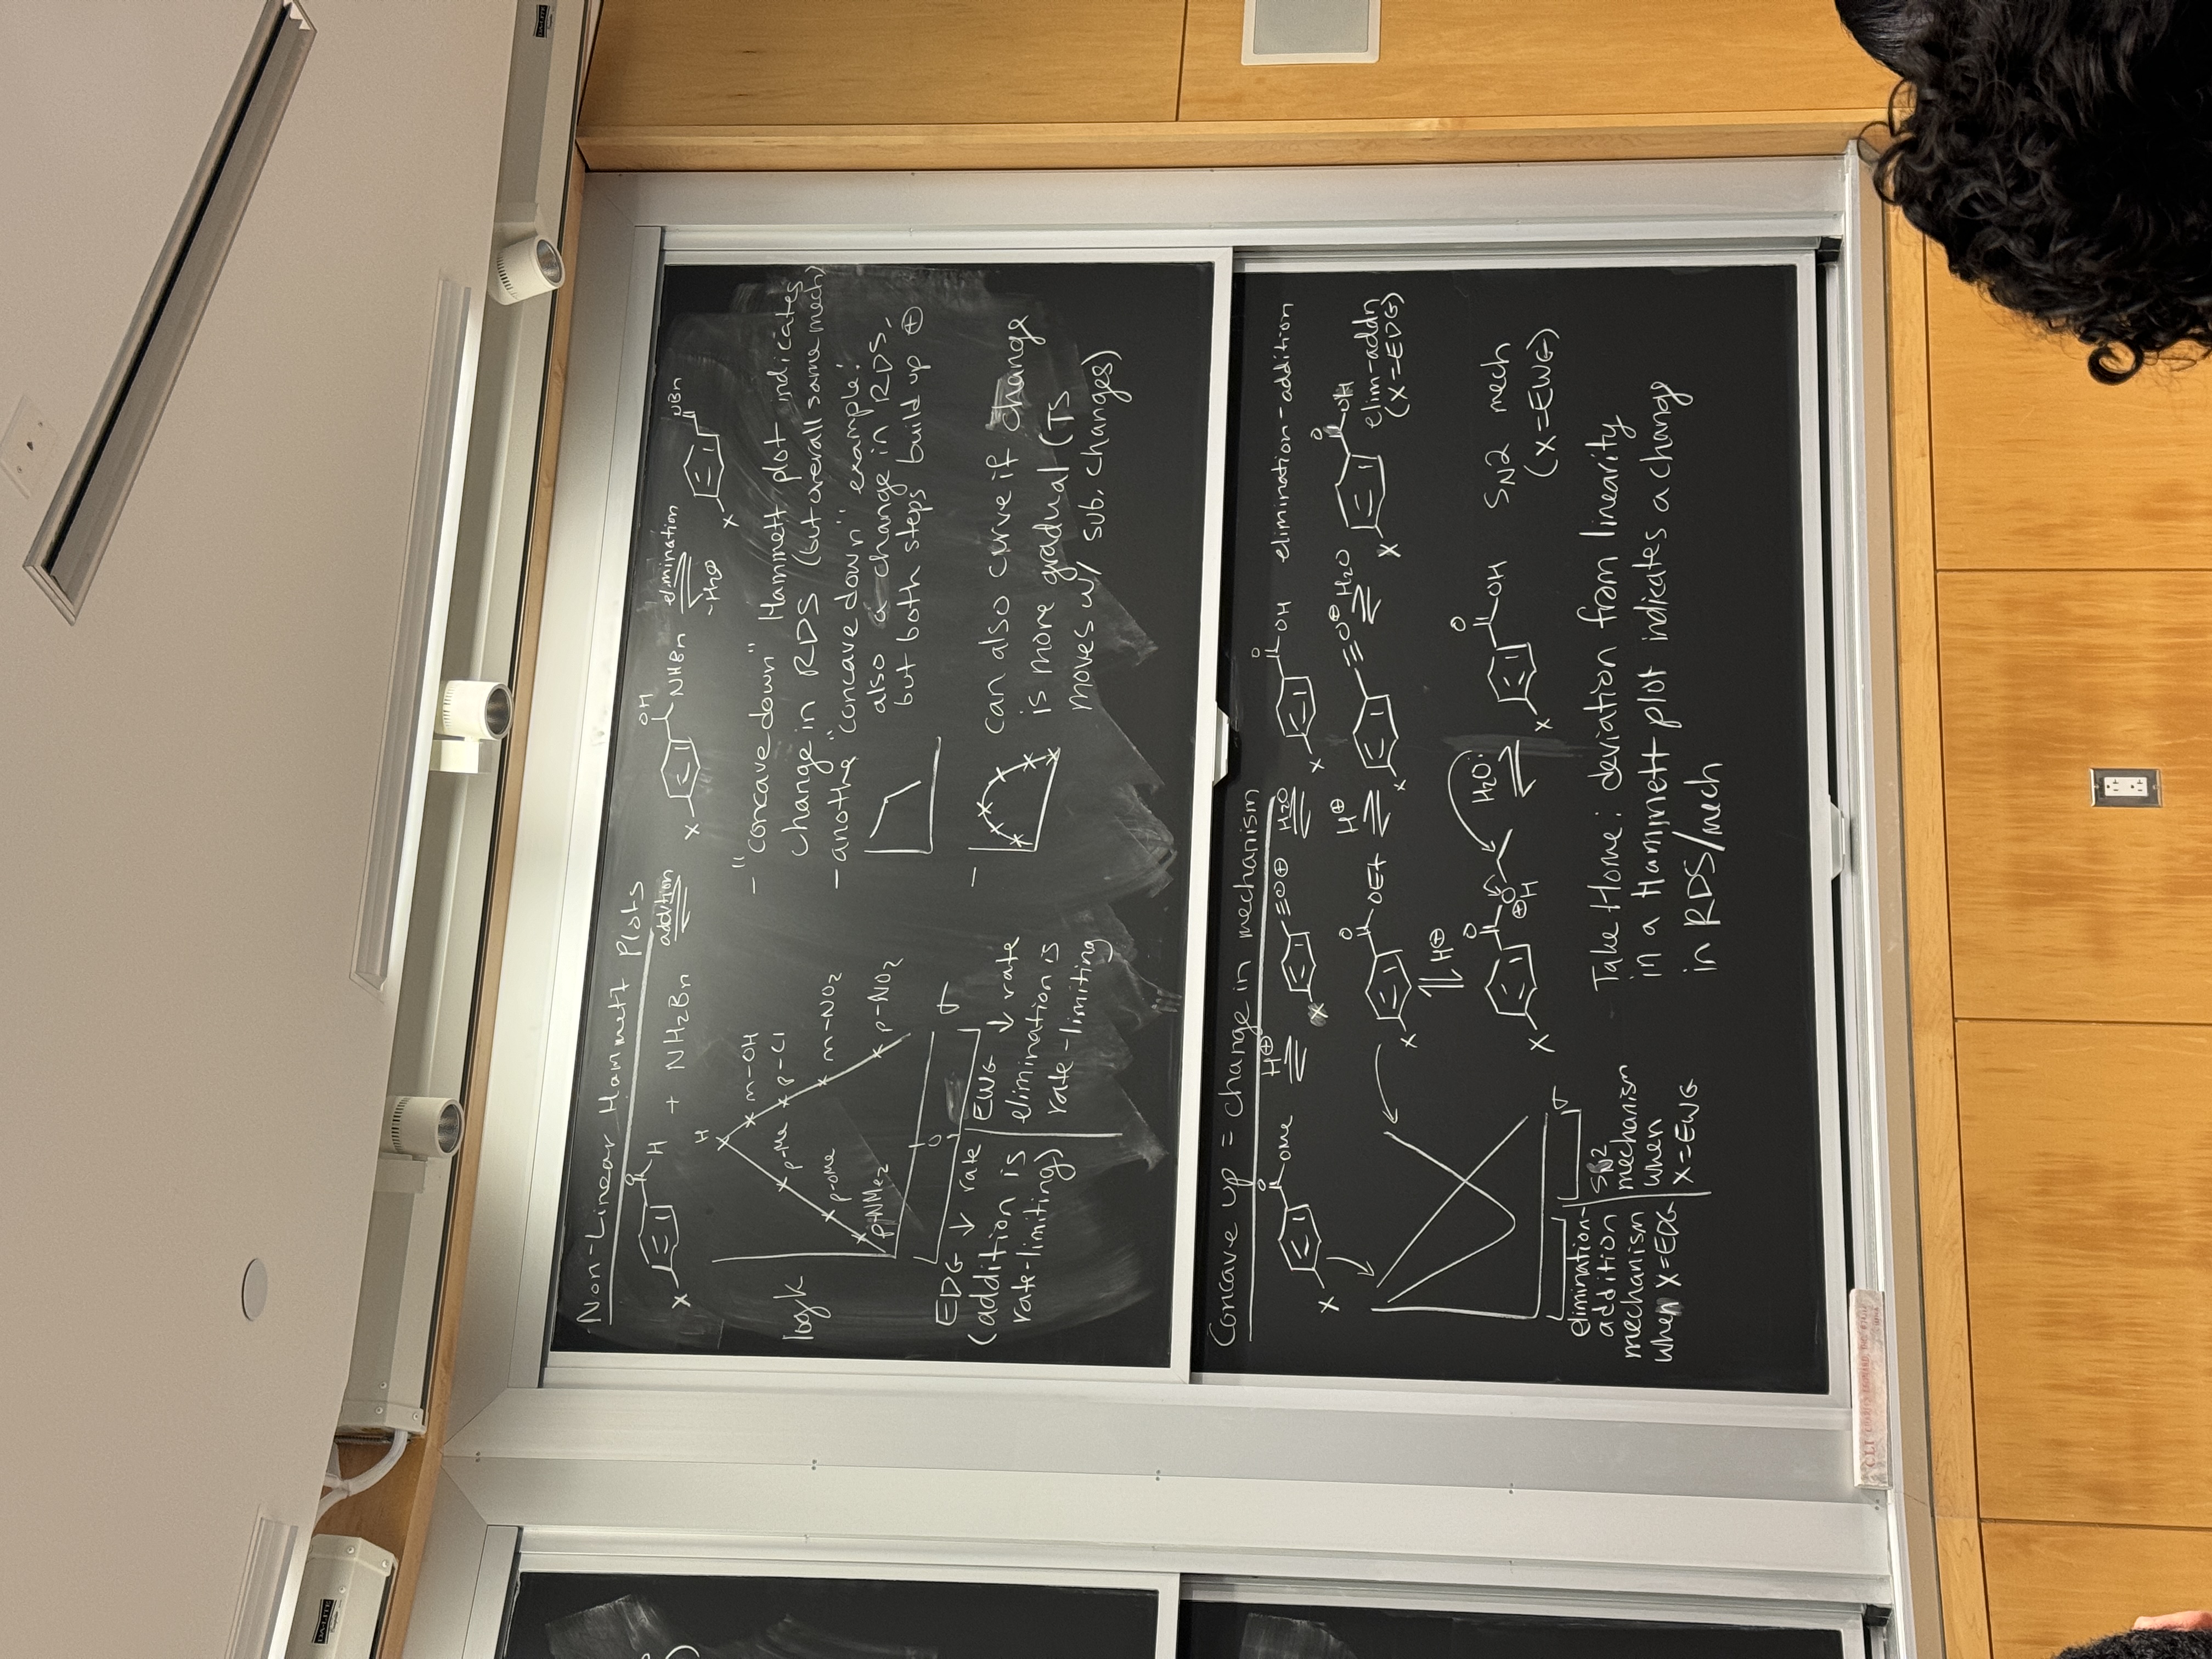 DA-LITE
DA-LITE
Non-Linear Hammett Plots
X O H + NH2Bn addition ⇌ X OH NHBn elimination ⇌ -H2O X NBn
log k
H
m-OH
p-Me
p-Cl
p-OMe
m-NO2
p-NMe2
p-NO2
0
σ
EDG ↓ rate
(addition is
rate-limiting)
EWG ↓ rate
elimination is
rate-limiting
- "concave down" Hammett plot indicates
change in RDS (but overall same mech)
- anothe "concave down" example:
also a change in RDS,
but both steps build up ⊕
- can also curve if change
is more gradual (TS
moves w/ sub. changes)
Concave up = change in mechanism
X O OMe H⊕ ⇌ X ≡O⊕ H2O ⇌ X O OH elimination-addition
X O OEt H⊕ ⇌ X ≡O⊕ H2O ⇌ X O OH elim-addn
(X=EDG)
⇌ H⊕
X O O⊕ H H2O: ⇌ X O OH SN2 mech
(X=EWG)
σ
elimination-
addition
mechanism
when X=EDG
SN2
mechanism
when
X=EWG
Take Home: deviation from linearity
in a Hammett plot indicates a change
in RDS/mech
CLI